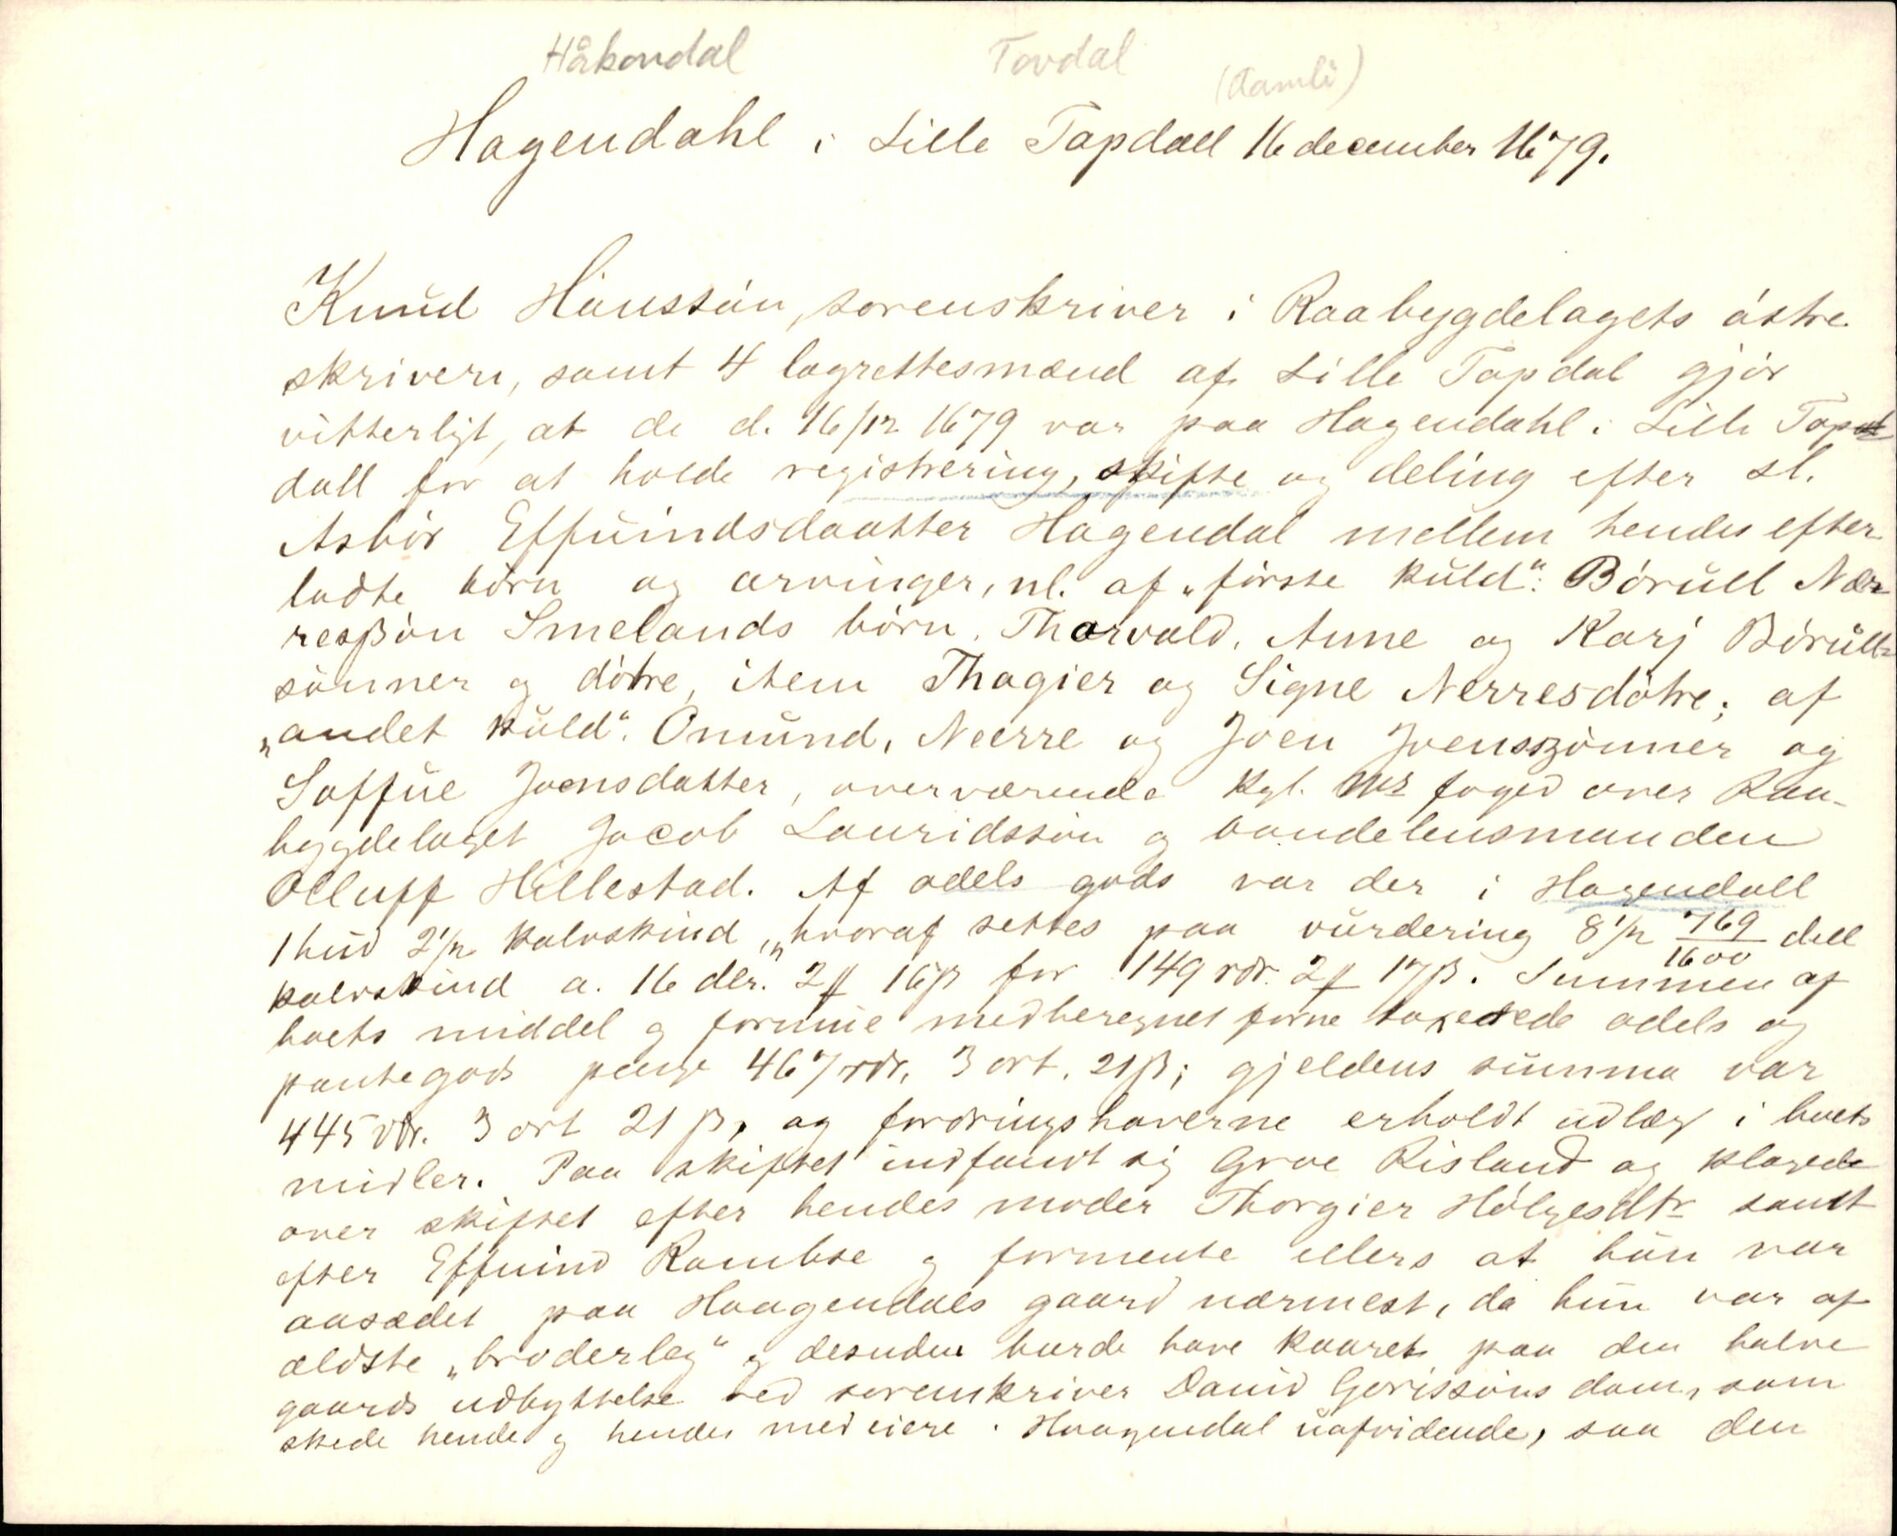 Håkondal Tovdal (Åamli)
Hagendahl i Lille Tapdall 16 december 1679.
Knud Hansson, sorenskriver i Raabygdelagets østre
skriveri, samt 4 lagrettesmænd af Lille Tapdal gjør
vitterligt, at de d. 16/12 1679 var paa Hagendahl i Lille Tap
dall for at holde registrering, skifte og deling efter sl.
Asbør Effuindsdaatter Hagendal mellem hendes efter
ladte børn og arvinger, nl. af "første kuld": Børuell Nær
resßøn Smelands børn, Tharvald, Anne og Karj Børuells
sønner og døtre, item Thagier og Signe Nerresdøtre; af
"andet kuld": Omund, Neerre og Joen Joensszønner og
Saffue Joensdatter, overværende kgl. Mts foged over Raa-
bygdelaget Jacob Lauridssøn og bondelensmanden
Olluff Hillestad. Af odels gods var der i Hagendall
1 hud 2 1/2 kalvskind, "hvoraf settes paa vurdering 8 1/2 769/1600 dell
kalvskind a. 16 dlr. 2 ƒ 16 β for 149 rdr. 2 ƒ 17 β. Summen af
boets middel og formue medberegnet forne taxerede odels og
pantegods penge 467 rdr. 3 ort. 21 β; gjeldens summa var
445 rdr. 3 ort 21 β, og fordringshaverne erholdt udlæg i boets
midler. Paa skiftet indfandt sig Groe Risland og klagede
over skiftet efter hendes moder Thorgier Hølgesdtr samt
efter Effuind Rambse og formente ellers at hun var
aasædet paa Haagendals gaard nærmest, da hun var af
ældste "broderleg" og desuden burde have kaaret paa den halve
gaards udbyttelse ved sorenskriver David Gørissøns dom, som
skede hende og hendes medeiere i Haagendal uafvidende, saa den